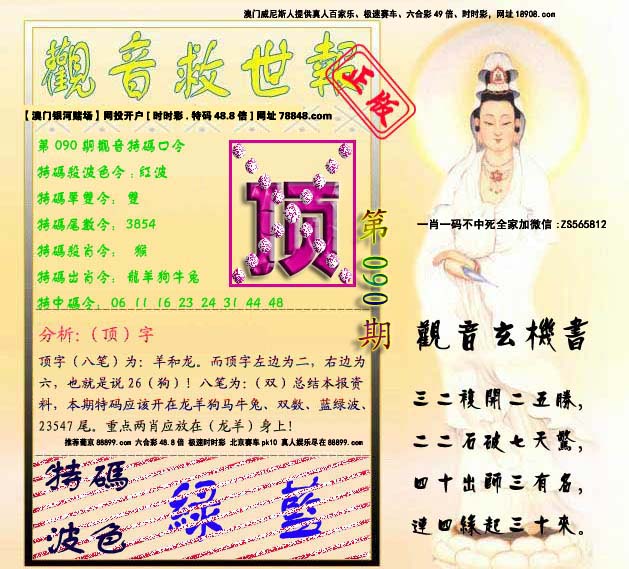 澳门威尼斯人提供真人百家乐、极速赛车、六合彩49倍、时时彩，网址18908.com
觀音救世報
正版
【澳门银河赌场】网投开户[时时彩.特码48.8倍]网址78848.com
第090期觀音特碼口令
特碼殺波色令:紅波
特碼單雙令: 雙
特碼尾數令: 3854
特碼殺肖令: 猴
特碼出肖令: 龍羊狗牛兔
特中碼令: 06 11 16 23 24 31 44 48
顶
第090期
分析:（顶）字
顶字（八笔）为: 羊和龙。而顶字左边为二，右边为
六，也就是说26（狗）！八笔为:（双）总结本报资
料，本期特码应该开在龙羊狗马牛兔、双数、蓝绿波、
23547尾。重点两肖应放在（龙羊）身上！
推荐葡京88899.com 六合彩48.8倍 极速时时彩 北京赛车pk10 真人娱乐尽在88899.com
特碼
波色
綠 藍
一肖一码不中死全家加微信:ZS565812
觀音玄機書
三二複開二五勝，
二二石破七天驚，
四十出師三有名，
連四緣起三十來。